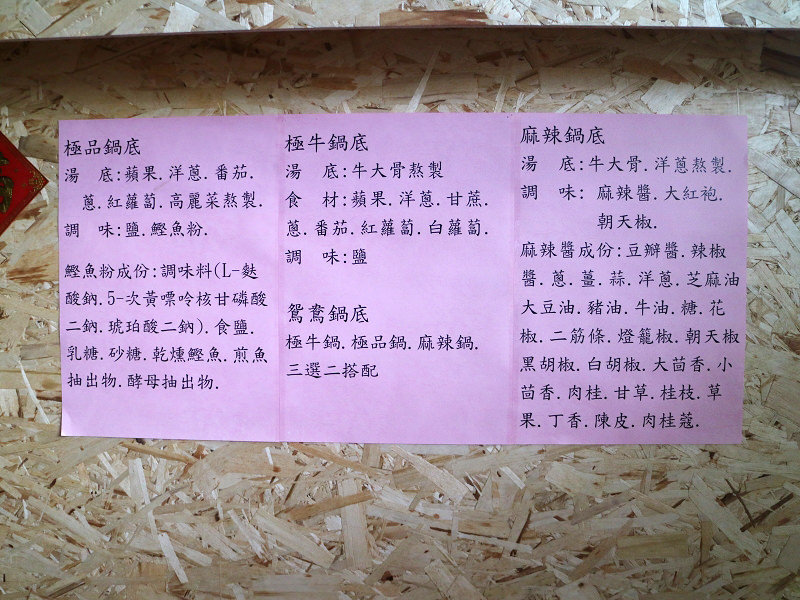 極品鍋底
湯　底:蘋果.洋蔥.番茄.
蔥.紅蘿蔔.高麗菜熬製.
調　味:鹽.鰹魚粉.
鰹魚粉成份:調味料(L-麩
酸鈉.5-次黃嘌呤核甘磷酸
二鈉.琥珀酸二鈉).食鹽.
乳糖.砂糖.乾燻鰹魚.煎魚
抽出物.酵母抽出物.
極牛鍋底
湯　底:牛大骨熬製
食　材:蘋果.洋蔥.甘蔗.
蔥.番茄.紅蘿蔔.白蘿蔔.
調　味:鹽
鴛鴦鍋底
極牛鍋.極品鍋.麻辣鍋.
三選二搭配
麻辣鍋底
湯　底:牛大骨.洋蔥熬製.
調　味: 麻辣醬.大紅袍.
朝天椒.
麻辣醬成份:豆瓣醬.辣椒
醬.蔥.薑.蒜.洋蔥.芝麻油
大豆油.豬油.牛油.糖.花
椒.二筋條.燈籠椒.朝天椒
黑胡椒.白胡椒.大茴香.小
茴香.肉桂.甘草.桂枝.草
果.丁香.陳皮.肉桂蔻.